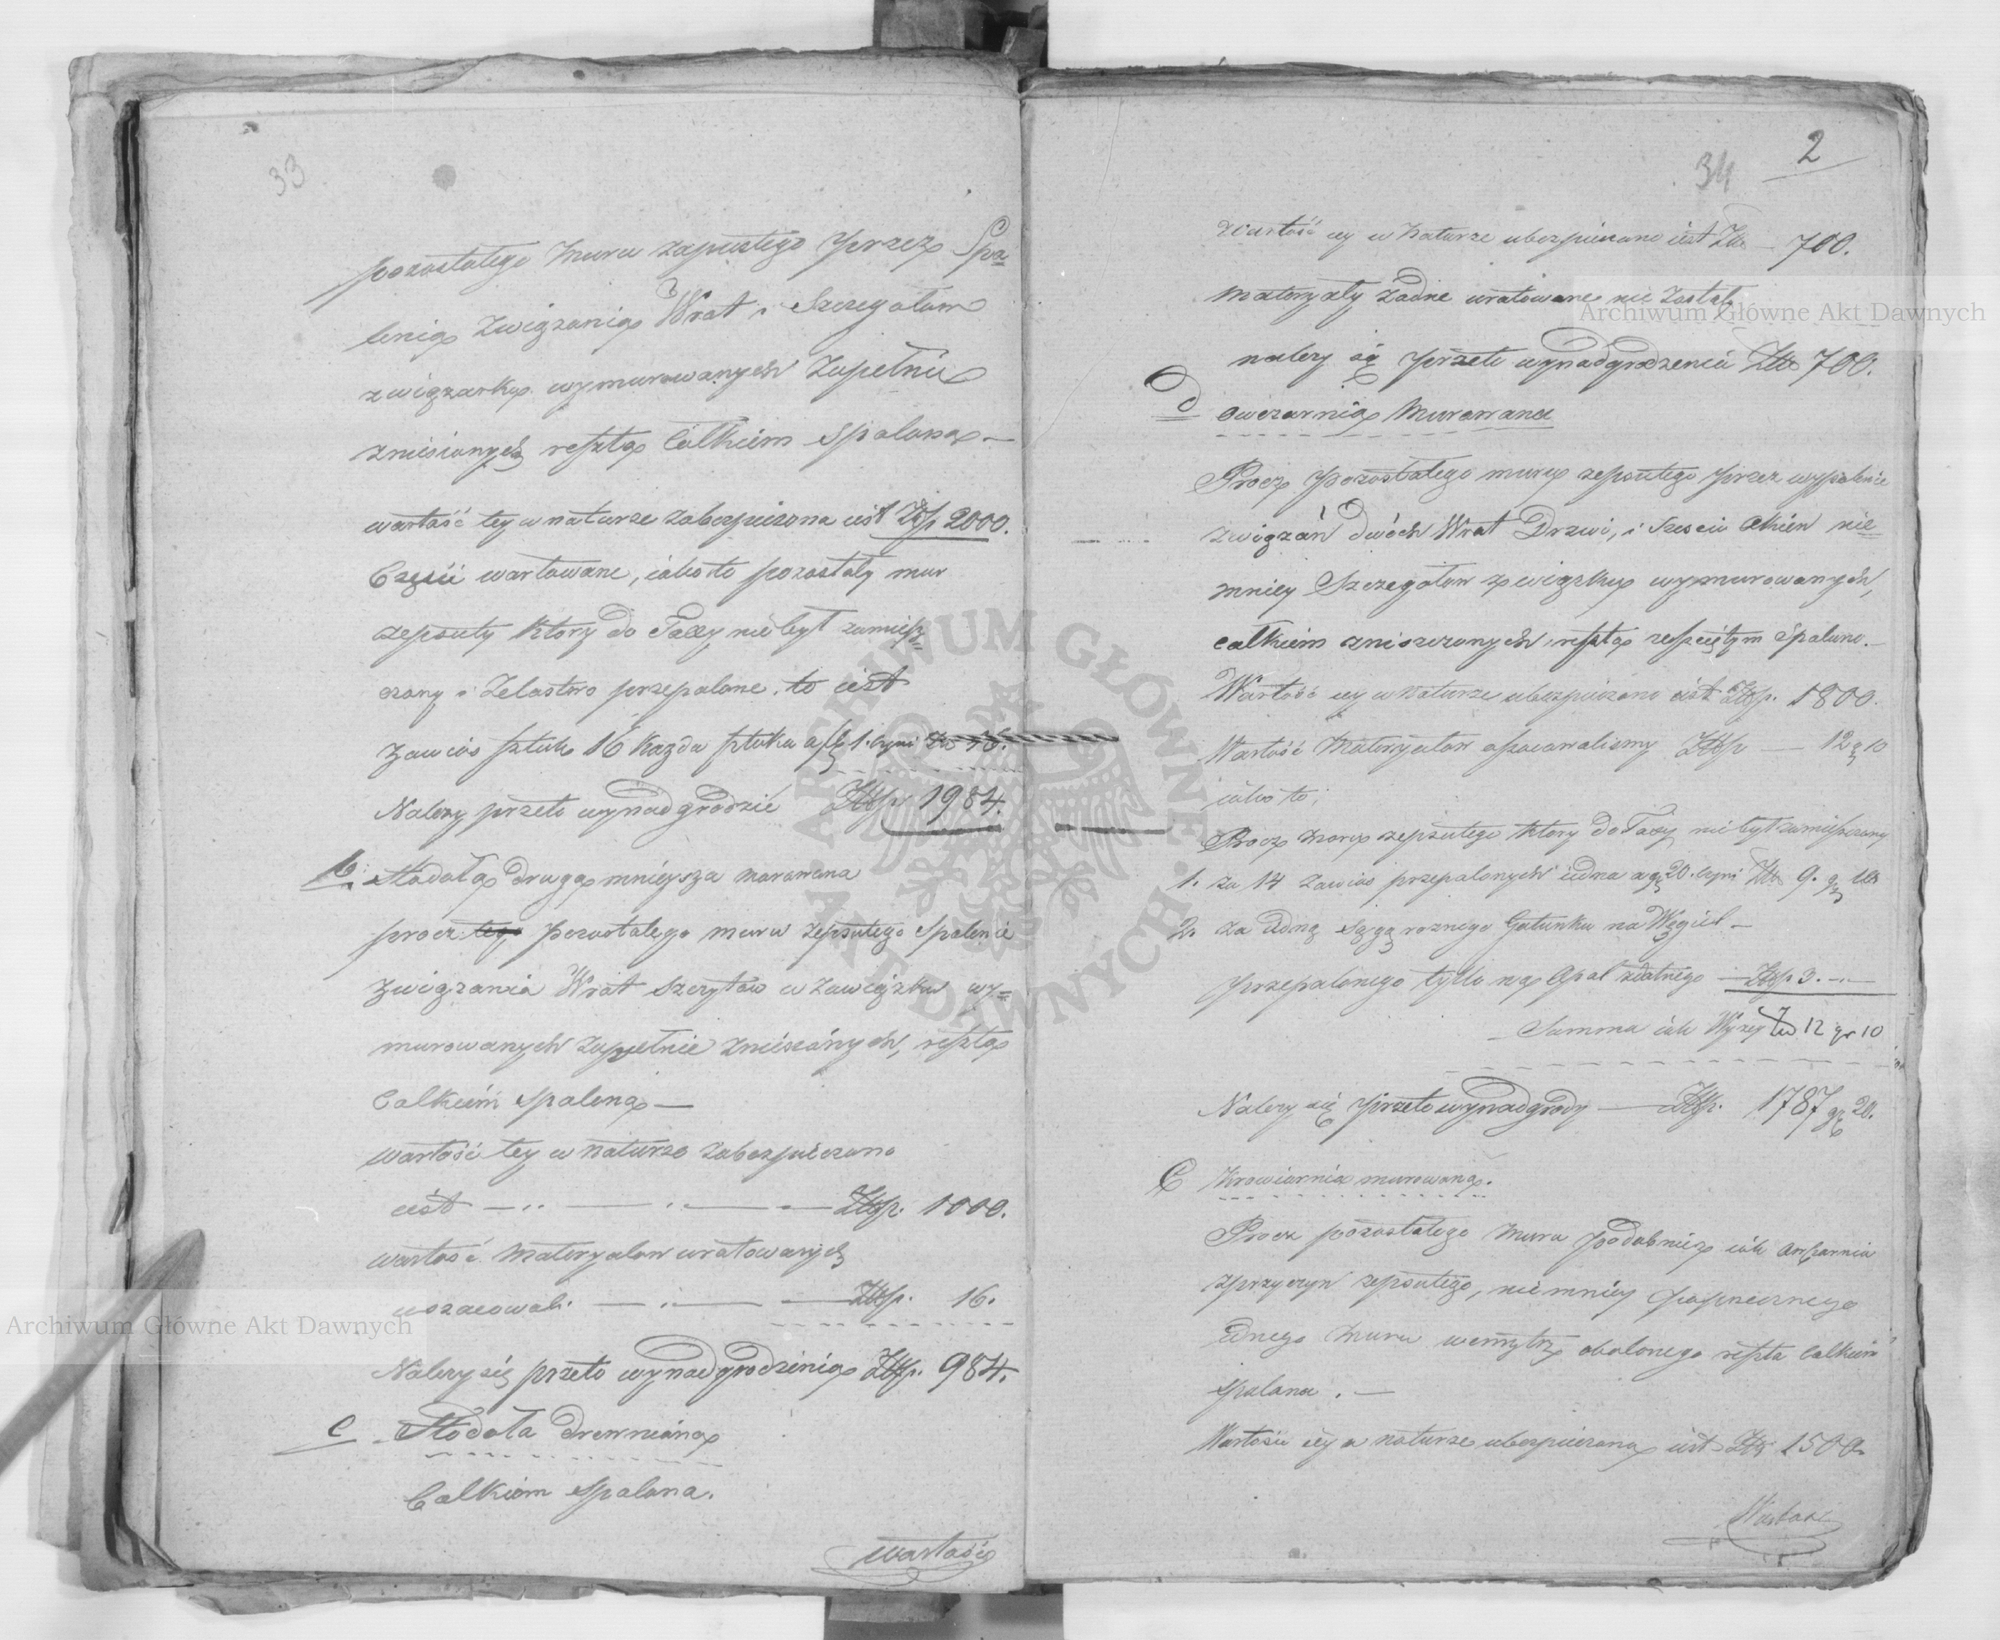 33
pozostałego muru zepsutego przez Spa=
lenia związania Wrot i Szczegołow
związarką wymurowanych Zupełnie
zniesionych reszta Całkiem Spalona —
wartość tey w naturze zabezpieczona iest Złp. 2000.
Części wartowane, iako to pozostały mur
zepsuty ktory do Taxy nie był zamiesz
czony i Zelastwo przepalone. to iest
Zawias sztuk 16 Kazda sztuka a f 1. czyni Zł 16.
Nalezy przeto wynadgrodzić Złłp. 1984.
b. Stodoła druga mnieysza murowana
procz tego pozostałego muru zepsutego Spalenie
związania Wrot Szczytow w Zawiązku wy=
murowanych zupełnie zniesionych, reszta
Całkiem spalona —
wartość tey w naturze zabezpieczono
iest — ·· — · — — Złłp. 1000.
wartość Materyałow uratowanych
uszacowali. — ·· — — Złłp. 16.
Nalezy się przeto wynadgrodzenia Złłp. 984.
c Stodoła drewniana
Całkiem spalona.
Wartość
2
34
Wartość iey w Naturze ubezpieczono iest Złł. — 700.
Materyały żadne uratowane nie zostały
nalezy się przeto wynadgrodzenia Złł 700.
D Owczarnia Murowana
Procz pozostałego muru zepsutego przez wypalenie
związań dwóch Wrot Drzwi, i Sześciu Okien nie=
mniey Szczegołow związku wymurowanych,
całkiem zniszczonych reszta Spalono. —
Wartość iey w Naturze ubezpieczono iest Złłp. 1800.
Wartość Materyałow oszacowalismy Złłp — 12 g 10
iako to;
Procz Muru zepsutego ktory do Taxy nie był zamieszczony
1. za 14 zawias przepalonych iedna a g 20. czyni Złł 9. g 10
2. za iedną Sągę roznego Gatunku na Węgiel —
przepalonego tylko na Opał zdatnego — Złłp 3. —··—
Summa iak Wyzey Zł 12 gr 10
Nalezy się przeto wynadgrody — Złłp. 1787 gr 20.
E Krowiarnia murowana.
Procz pozostałego Muru podobnie iak Owczarnia
zprzyczyn zepsutego, nie mniey poprzecznego
iednego Muru wewnątrz obalonego reszta Całkiem
spalona. —
Wartość iey w naturze ubezpieczona iest Złł 1500.
Wartość
Archiwum Główne Akt Dawnych
Archiwum Główne Akt Dawnych
ARCHIWUM GŁÓWNE AKT DAWNYCH · W ·